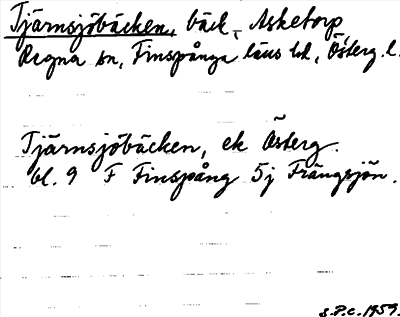 Tjärnsjöbäcken, bäck, Asketorp
Regna sn, Finspånga läns hd, Österg. l.
Tjärnsjöbäcken, ek Österg.
bl. 9 F Finspång 5j Frängsjön.
S.P.C. 1959.